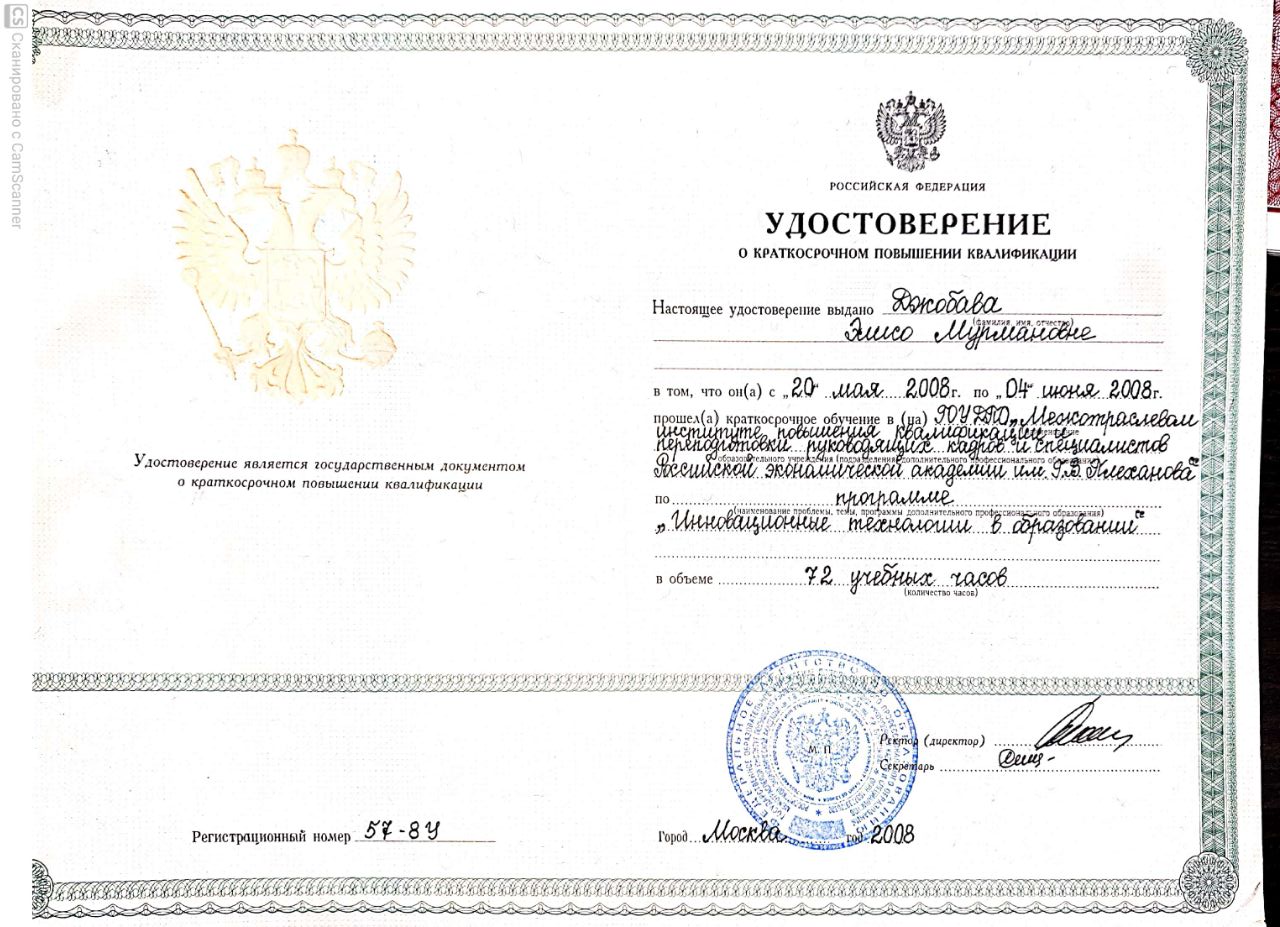 CS Сканировано с CamScanner
Удостоверение является государственным документом
о краткосрочном повышении квалификации
Регистрационный номер 57-8У
РОССИЙСКАЯ ФЕДЕРАЦИЯ
УДОСТОВЕРЕНИЕ
О КРАТКОСРОЧНОМ ПОВЫШЕНИИ КВАЛИФИКАЦИИ
Настоящее удостоверение выдано Джобава
(фамилия, имя, отчество)
Элисо Мурмановне
в том, что он(а) с „20“ мая 2008г. по „04“ июня 2008г.
прошел(а) краткосрочное обучение в (на) ГОУ ДПО „Межотраслевом
институте повышения квалификации и
переподготовки руководящих кадров и специалистов
образовательного учреждения (подразделения) дополнительного профессионального образования)
Российской экономической академии им. Г.В. Плеханова“
по программе
(наименование проблемы, темы, программы дополнительного профессионального образования)
„Инновационные технологии в образовании“
в объеме 72 учебных часов
(количество часов)
ФЕДЕРАЛЬНОЕ АГЕНТСТВО ПО ОБРАЗОВАНИЮ
М. П.
Ректор (директор)
Секретарь
Город Москва год 2008